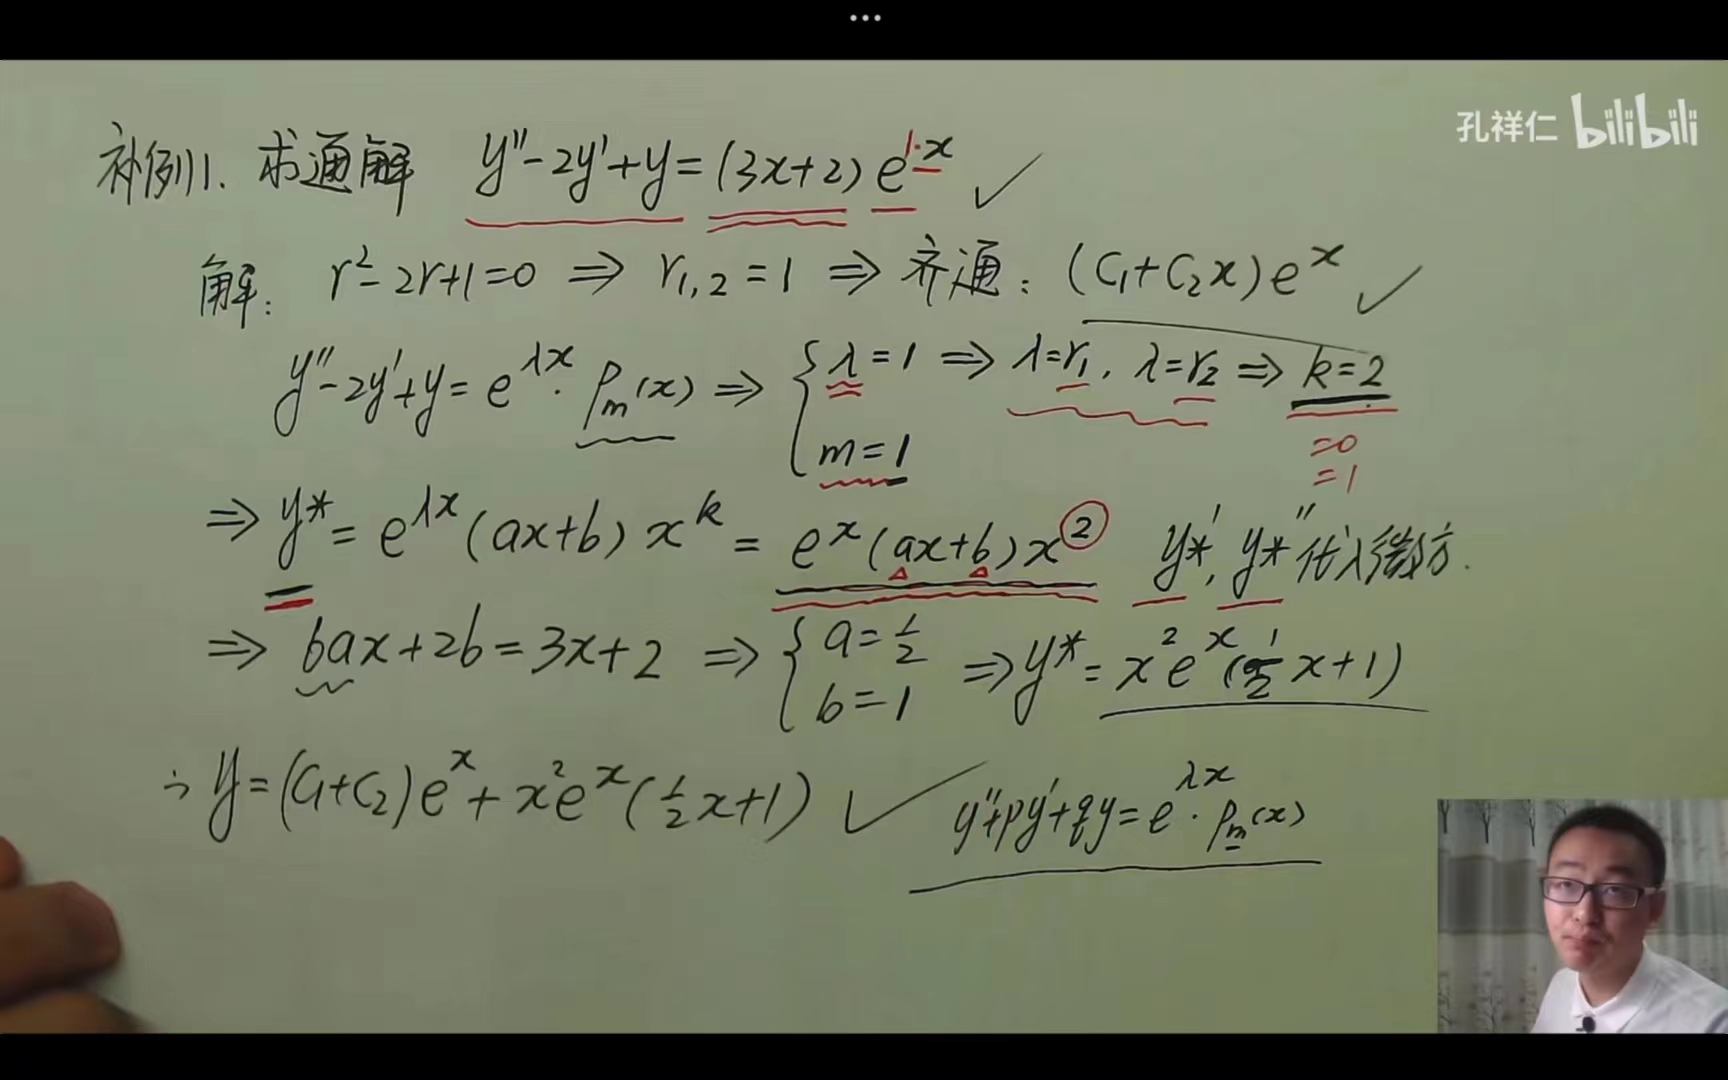 ...
孔祥仁 bilibili
补例1. 求通解 y''-2y'+y=(3x+2)e^{1·x} ✓
解: r²-2r+1=0 ⇒ r₁,₂=1 ⇒ 齐通: (C₁+C₂x)e^x ✓
y''-2y'+y=e^{λx}·P_m(x) ⇒ { λ=1 ⇒ λ=r₁, λ=r₂ ⇒ k=2
m=1
=0
=1
⇒ y*=e^{λx}(ax+b)x^k=e^x(ax+b)x² y*', y*''代入微方.
⇒ 6ax+2b=3x+2 ⇒ { a=1/2
b=1
⇒ y*=x²e^x(1/2 x+1)
∴ y=(C₁+C₂)e^x+x²e^x(1/2 x+1) ✓
y''+py'+qy=e^{λx}·P_m(x)